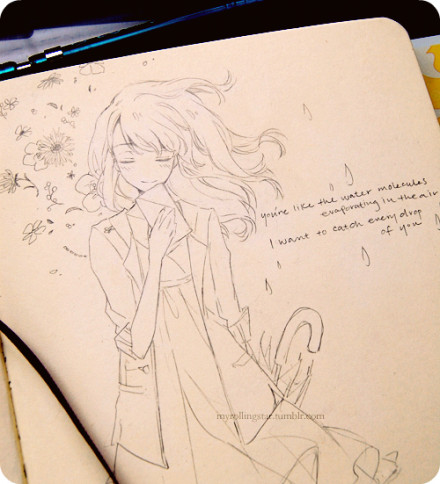 you're like the water molecules
evaporating in the air
I want to catch every drop
of you
myrollingstar.tumblr.com